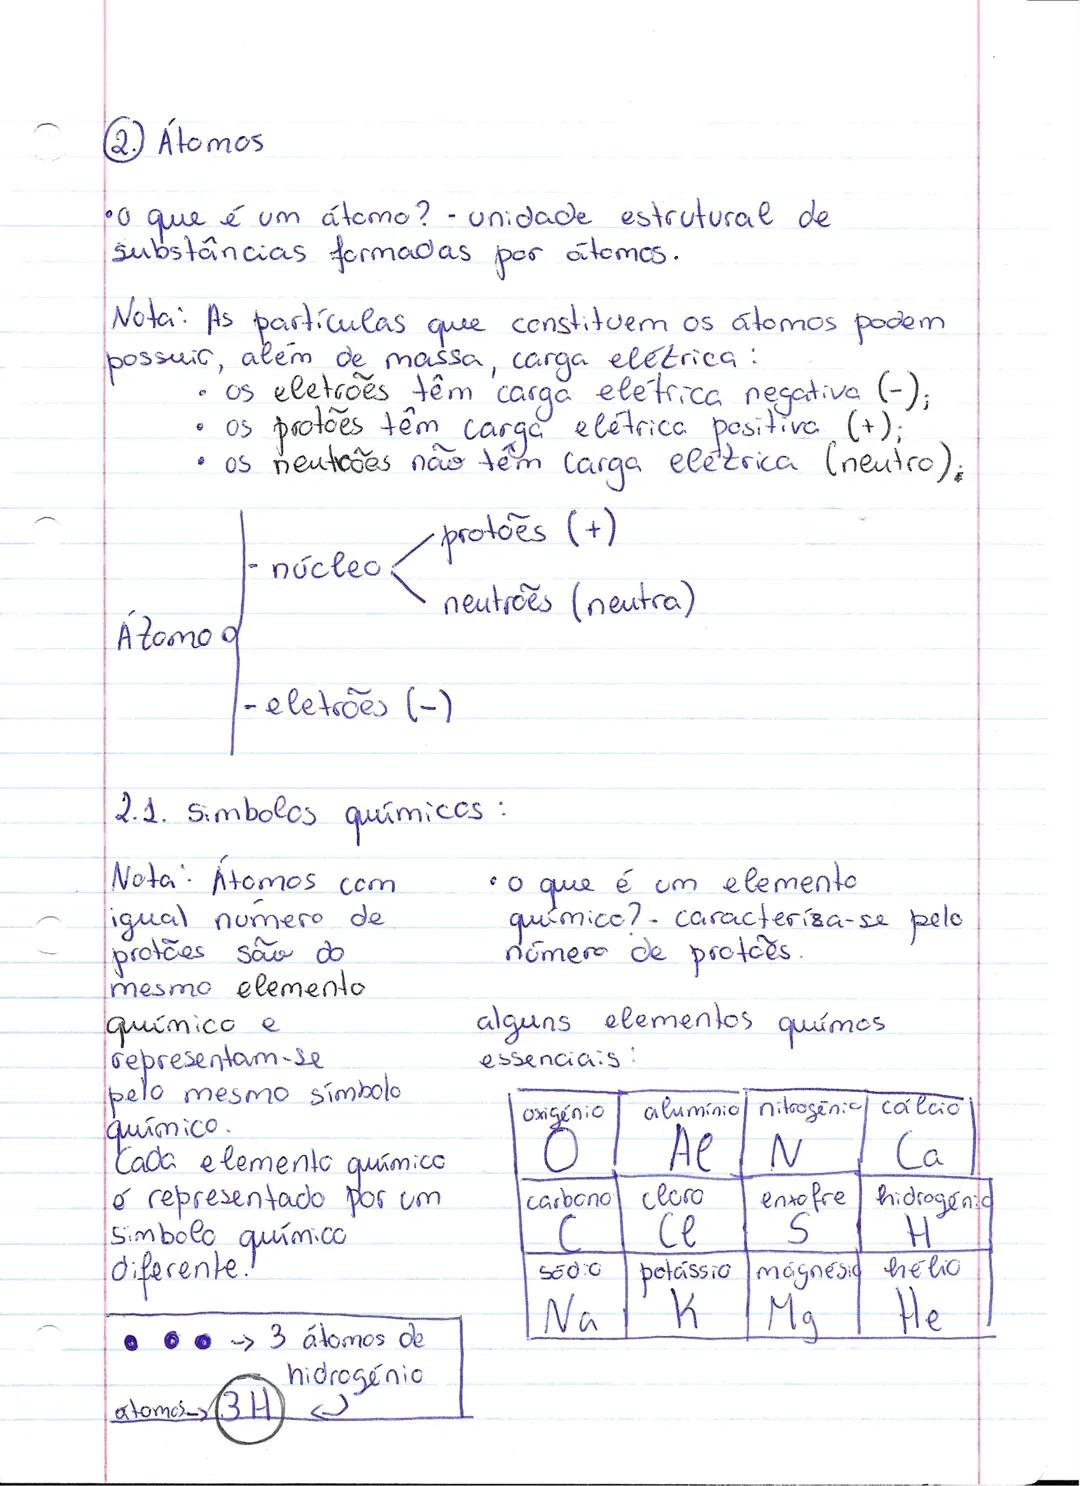 2. Átomos
•O que é um átomo? - unidade estrutural de
substâncias formadas por átomos.
Nota: As partículas que constituem os átomos podem
possuir, além de massa, carga elétrica:
• os eletrões têm carga elétrica negativa (-);
• os protões têm carga elétrica positiva (+);
• os neutrões não têm carga elétrica (neutro);
Átomo
- núcleo
protões (+)
neutrões (neutra)
- eletrões (-)
2.1. Simbolos químicos:
Nota: Átomos com
igual número de
protões são do
mesmo elemento
químico e
representam-se
pelo mesmo símbolo
químico.
Cada elemento químico
é representado por um
simbolo químico
diferente!
• o que é um elemento
químico? - caracteriza-se pelo
número de protões.
alguns elementos químos
essenciais:
oxigénio alumínio nitrogénio cálcio
O Al N Ca
carbono cloro enxofre hidrogénio
C Cl S H
sódio potássio magnésio hélio
Na K Mg He
-> 3 átomos de
hidrogénio
átomos-> 3H